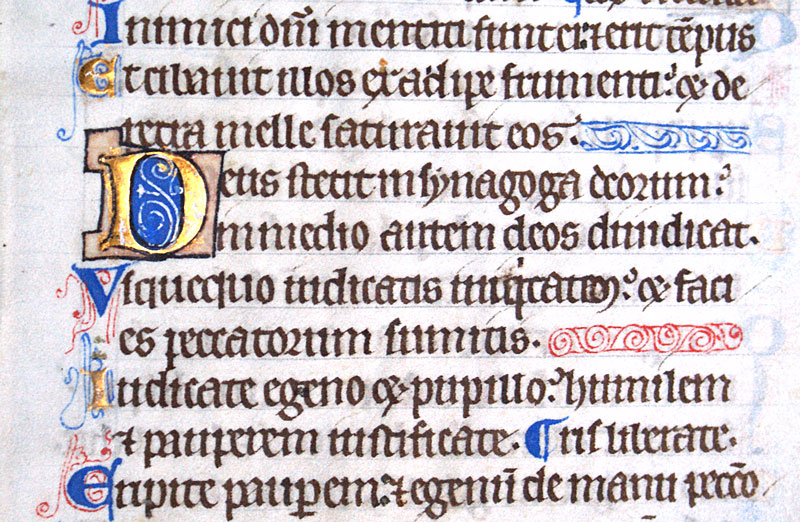 Inimici dñi mentiti sunt ei: ⁊ erit tēpus
Et cibauit illos ex adipe frumenti: ⁊ de
petra melle saturauit eos.
Deus stetit in synagoga deorum:
in medio autem deos diiudicat.
Vsquequo iudicatis iniq̇tatem: ⁊ faci
es peccatorum sumitis.
Iudicate egeno ⁊ pupillo: humilem
⁊ pauperem iustificate. ¶ ris liberate.
Eripite pauꝑem: ⁊ egenū de manu peccō